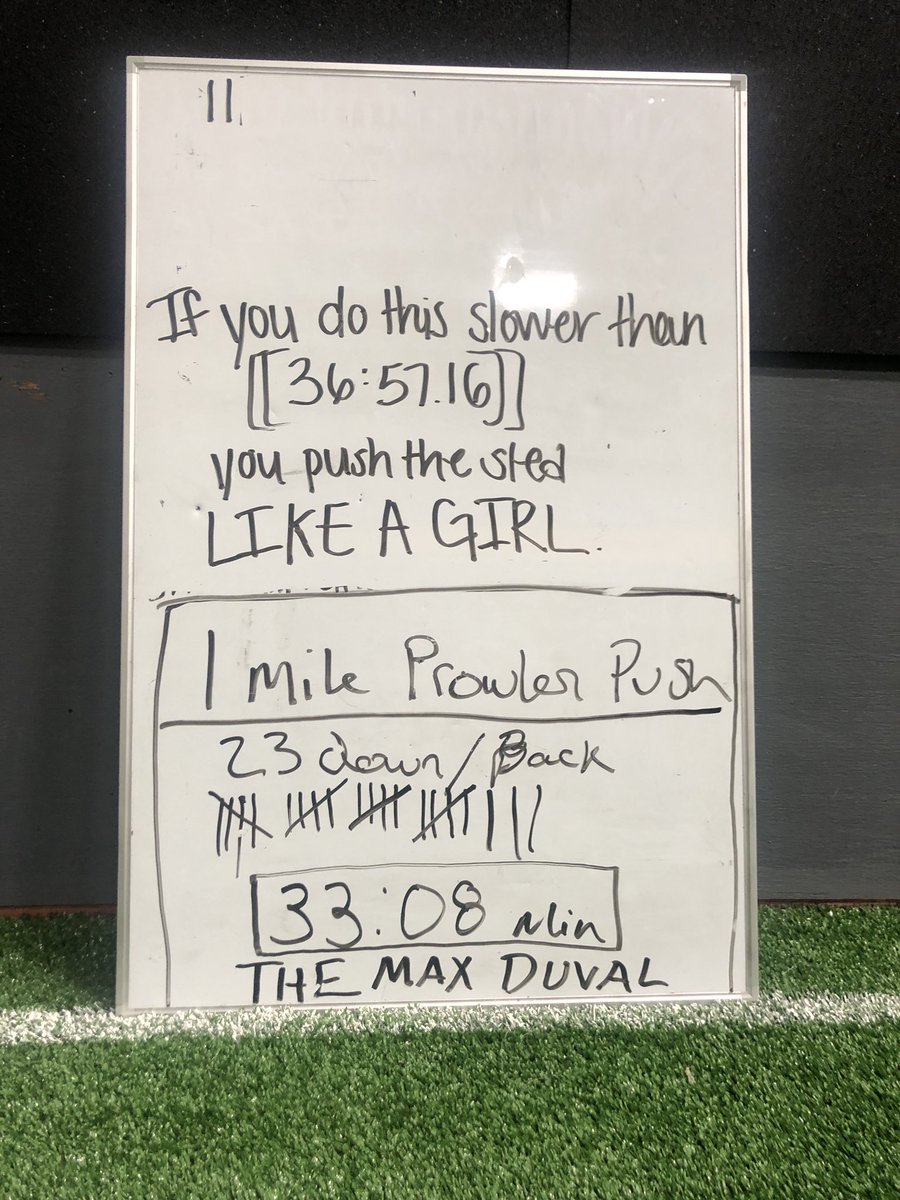 11
If you do this slower than
[[36:57.16]]
you push the sled
LIKE A GIRL.
1 mile Prowler Push
23 down/Back
33:08 Min
THE MAX DUVAL